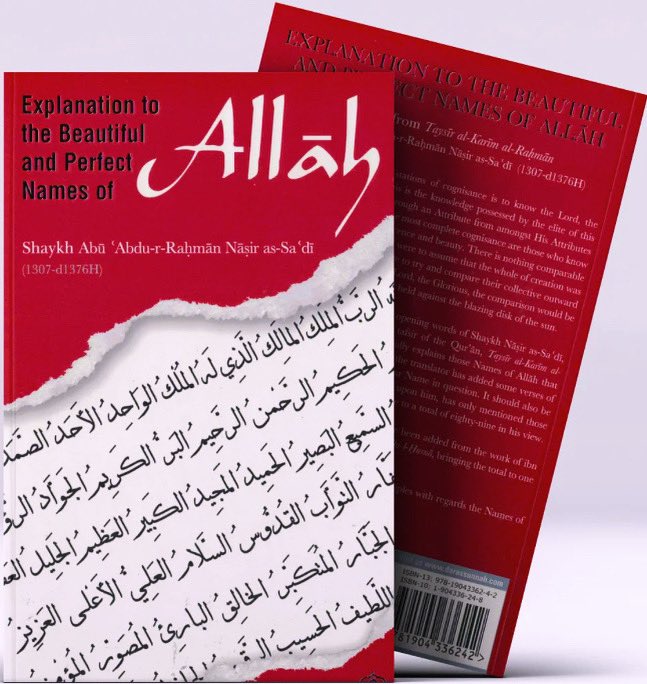 Explanation to
the Beautiful
and Perfect
Names of
Allāh
Shaykh Abū ʿAbdu-r-Raḥmān Nāṣir as-Saʿdī
(1307-d1376H)
الرَّبُّ المَلِكُ المَالِكُ الَّذِي لَهُ المُلْكُ الوَاحِدُ الأَحَدُ الصَّمَدُ
الحَكِيمُ الرَّحْمَنُ الرَّحِيمُ البَرُّ الكَرِيمُ الجَوَادُ
السَّمِيعُ البَصِيرُ الحَمِيدُ المَجِيدُ الكَبِيرُ العَظِيمُ الجَلِيلُ
التَّوَّابُ القُدُّوسُ السَّلَامُ العَلِيُّ الأَعْلَى العَزِيزُ
الجَبَّارُ المُتَكَبِّرُ الخَالِقُ البَارِئُ المُصَوِّرُ
اللَّطِيفُ الحَسِيبُ
EXPLANATION TO THE BEAUTIFUL
AND PERFECT NAMES OF ALLĀH
from Taysīr al-Karīm al-Raḥmān
-r-Raḥmān Nāṣir as-Saʿdī (1307-d1376H)
stations of cognisance is to know the Lord, the
is the knowledge possessed by the elite of this
ough an Attribute from amongst His Attributes
most complete cognisance are those who know
ce and beauty. There is nothing comparable
ere to assume that the whole of creation was
to try and compare their collective outward
rd, the Glorious, the comparison would be
ould against the blazing disk of the sun.
pening words of Shaykh Nāṣir as-Saʿdī,
afsīr of the Qurʾān, Taysīr al-Karīm al-
explains those Names of Allāh that
e translator has added some verses of
Name in question. It should also be
pon him, has only mentioned those
to a total of eighty-nine in his view.
een added from the work of ibn
bringing the total to one
ples with regards the Names of
at www.darassunnah.com
ISBN-13: 978-19043362-4-2
ISBN-10: 1-904336-24-8
781904 336242 >